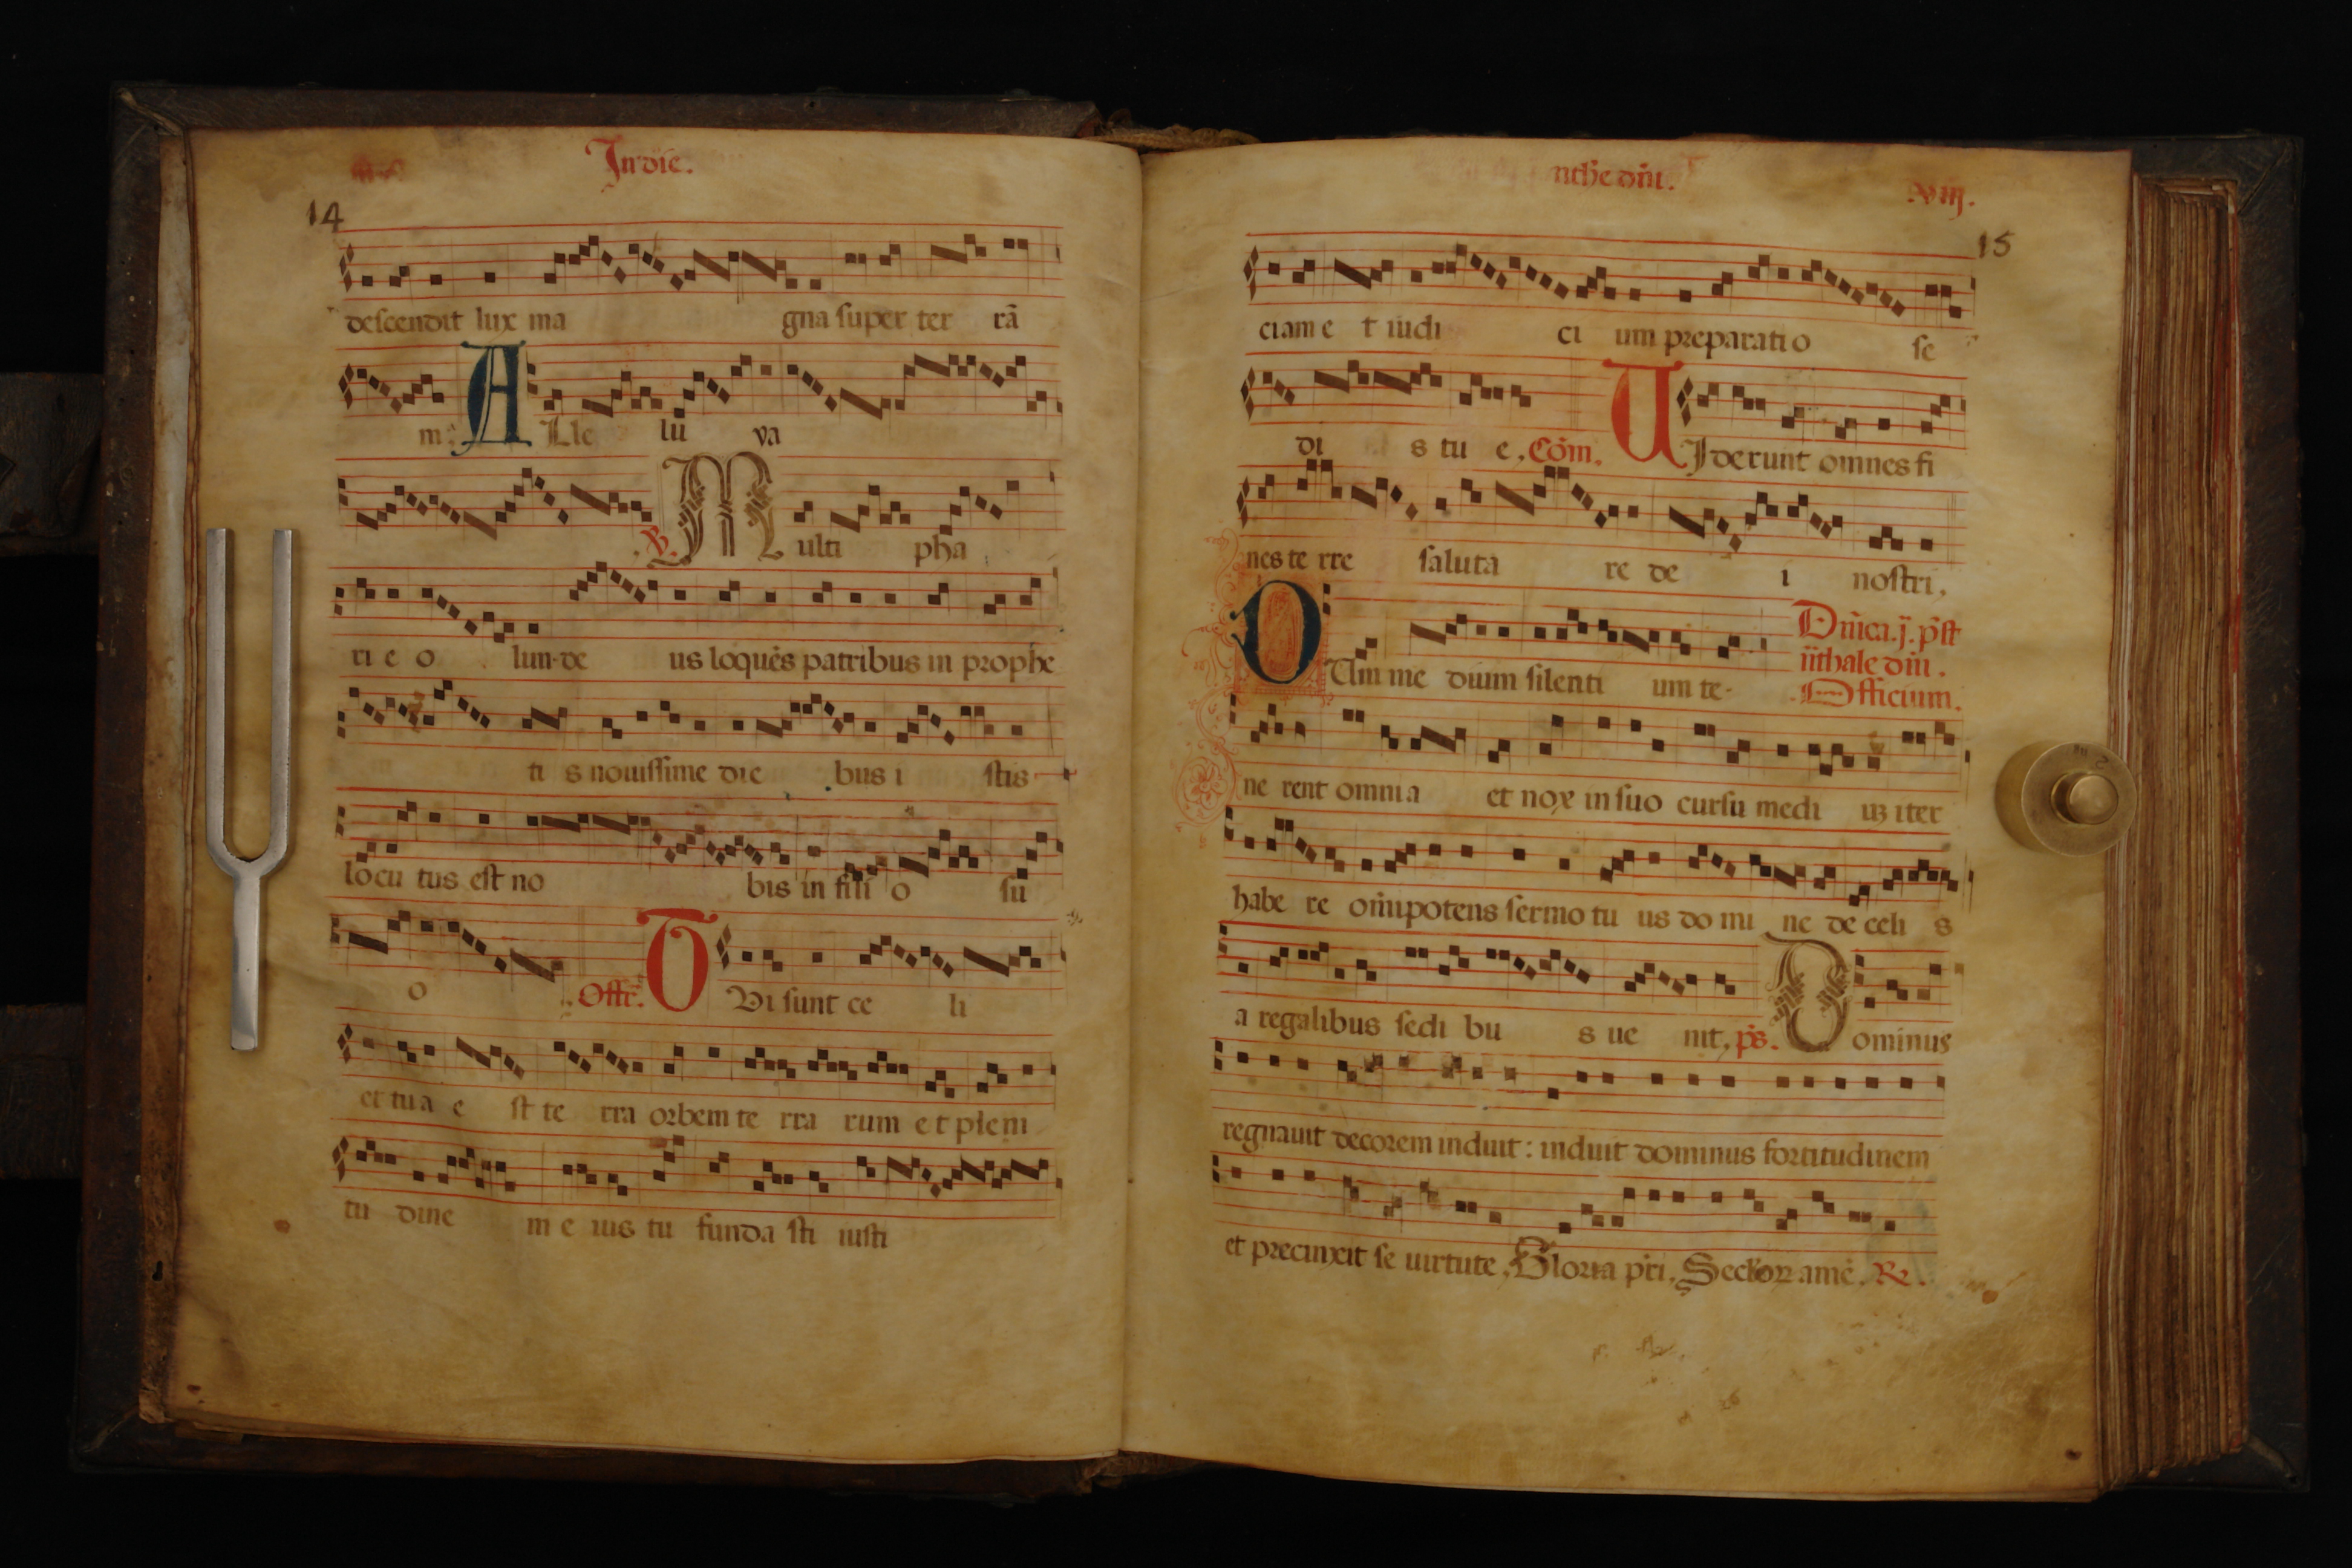 In die.
14
descendit lux ma gna super ter rā
m: A Lle lu ya
℣. M ulti pha
ri e o lim de us loquēs patribus in prophe
ti s nouissime die bus i stis
locu tus est no bis in fili o su
o Offr. T Vi sunt ce li
et tua e st te rra orbem te rra rum e t pleni
tu dine m e ius tu funda sti iusti
nth̄e dñi.
15
ciam e t iudi ci um preparati o se
di s tu e, Cōm. U Iderunt omnes fi
nes te rre saluta re de i nostri,
Dñica.j. p̄st
D Um me dium silenti um te-
Officium.
ne rent omnia et nox in suo cursu medi uȝ iter
habe re om̄ipotens sermo tu us do mi ne de celi s
a regalibus sedi bu s ue nit, p̄s. D ominus
regnauit decorem induit: induit dominus fortitudinem
et precinxit se uirtute, Gloria pr̄i, Seclor amē. R.